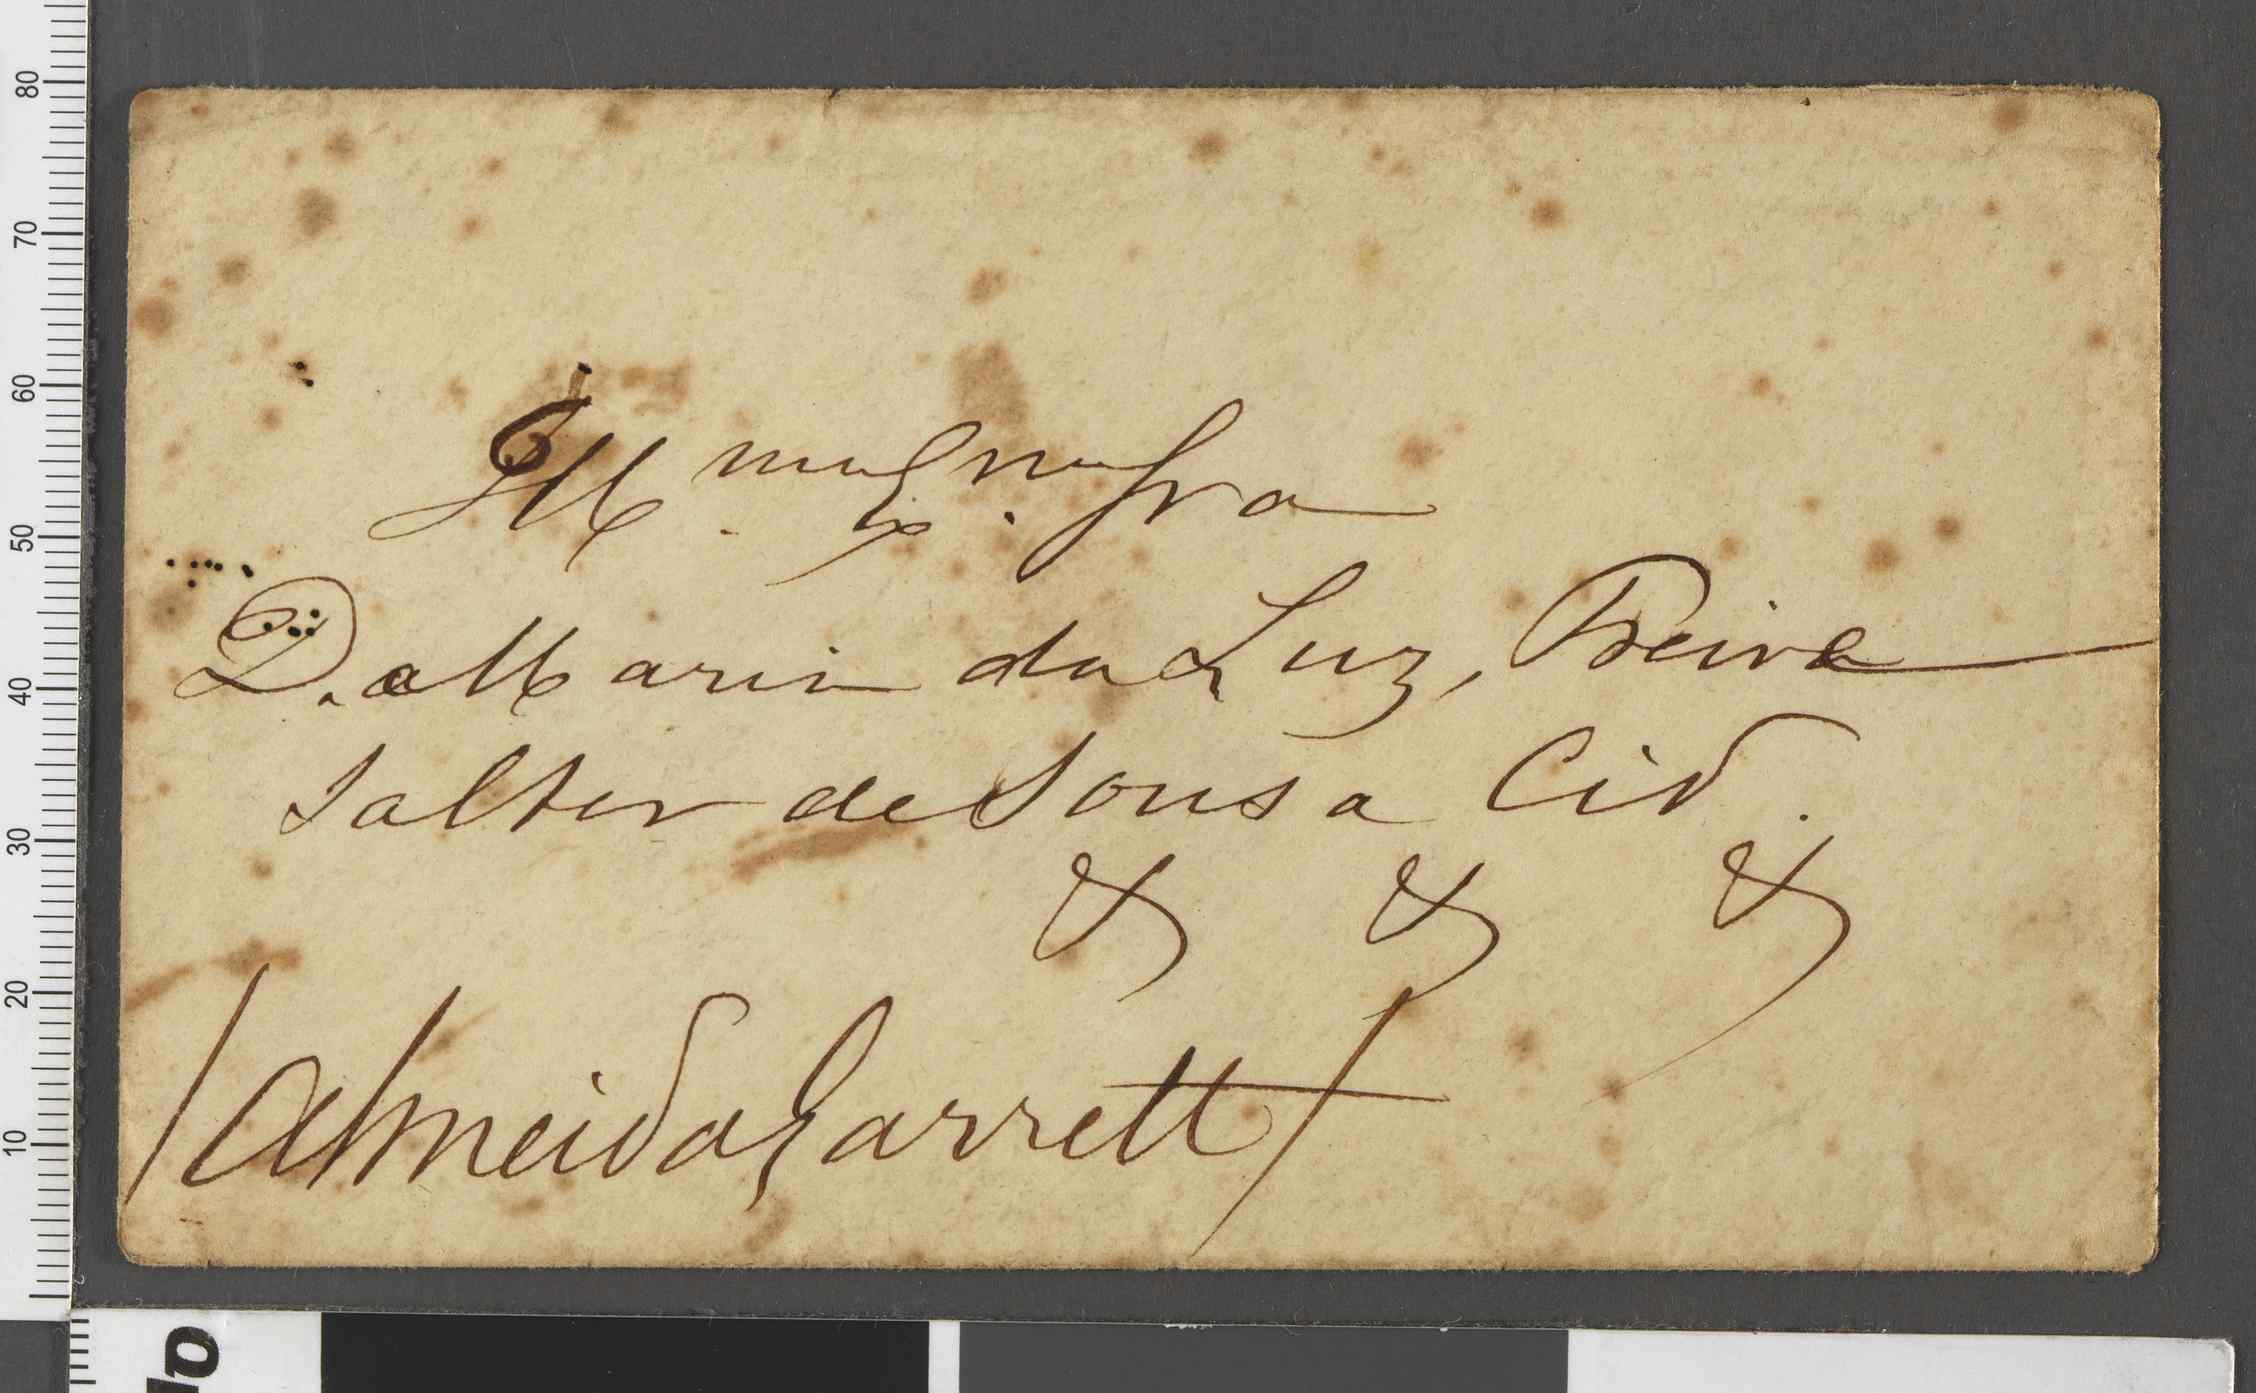 Ill.ma Ex.ma Sra
D. Maria da Luz, Freire
Salter de Sousa Cid.
& & &
/AlmeidaGarrett/
80
70
60
50
40
30
20
10